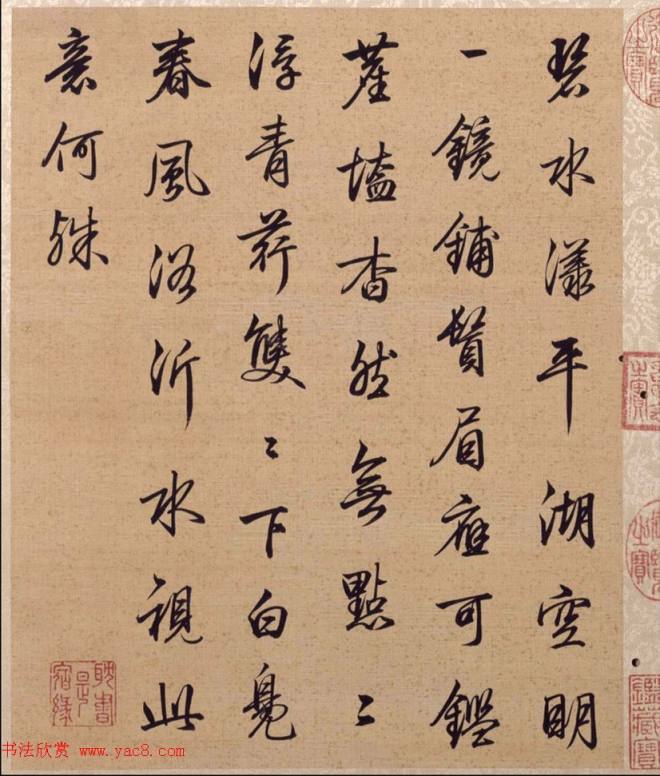 碧水漾平湖空明
一鏡鋪鬢眉應可鑑
塵壒杳然無點〻
浮青荇雙〻下白鳧
春風浴沂水視此
意何殊
耽書是宿緣
书法欣赏 www.yac8.com